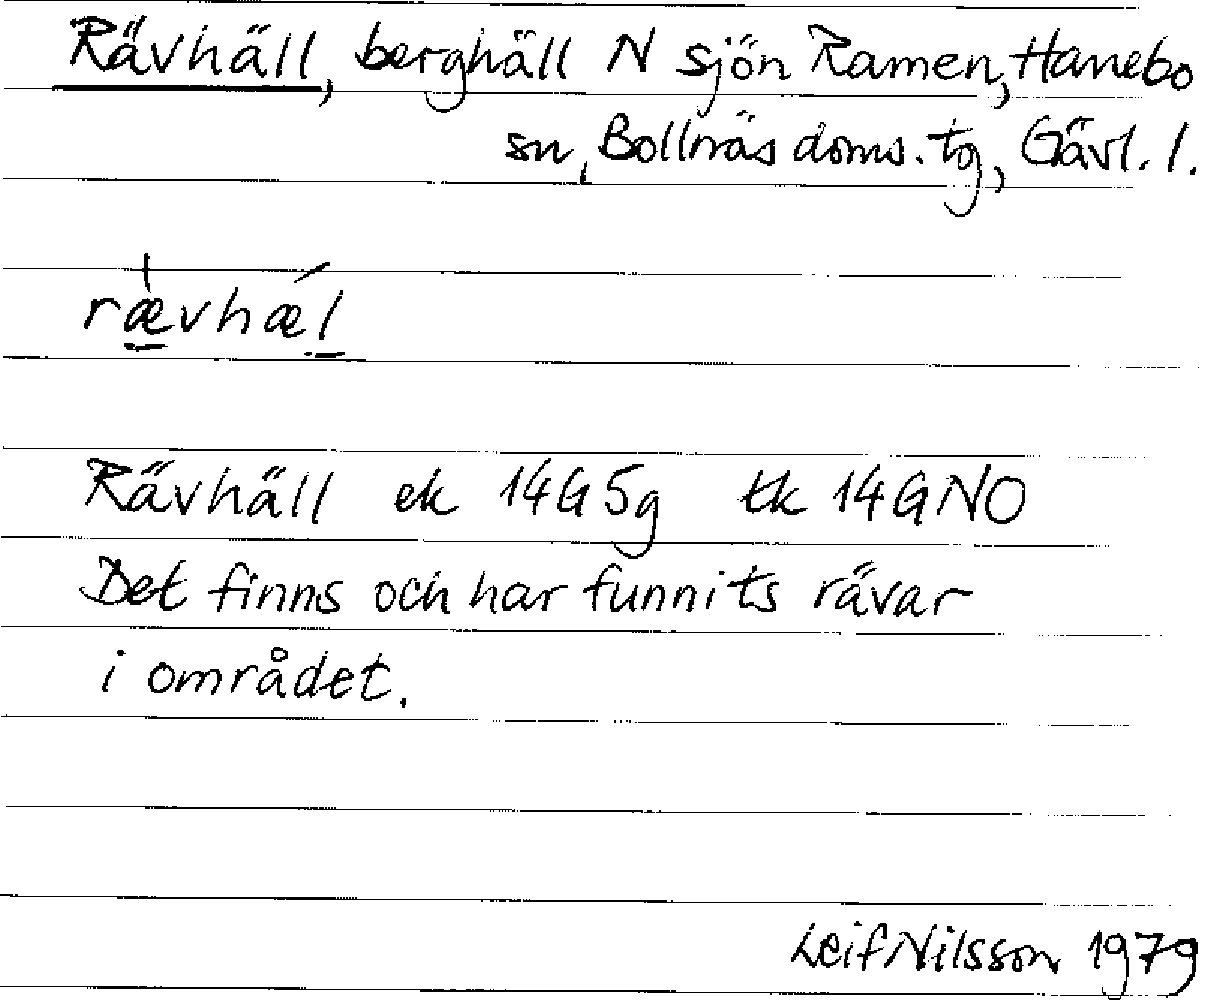 Rävhäll, berghäll N sjön Ramen, Hanebo
sn, Bollnäs doms. tg, Gävl. l.
ræ̀vhǽl
Rävhäll ek 14G5g tk 14GNO
Det finns och har funnits rävar
i området.
Leif Nilsson 1979